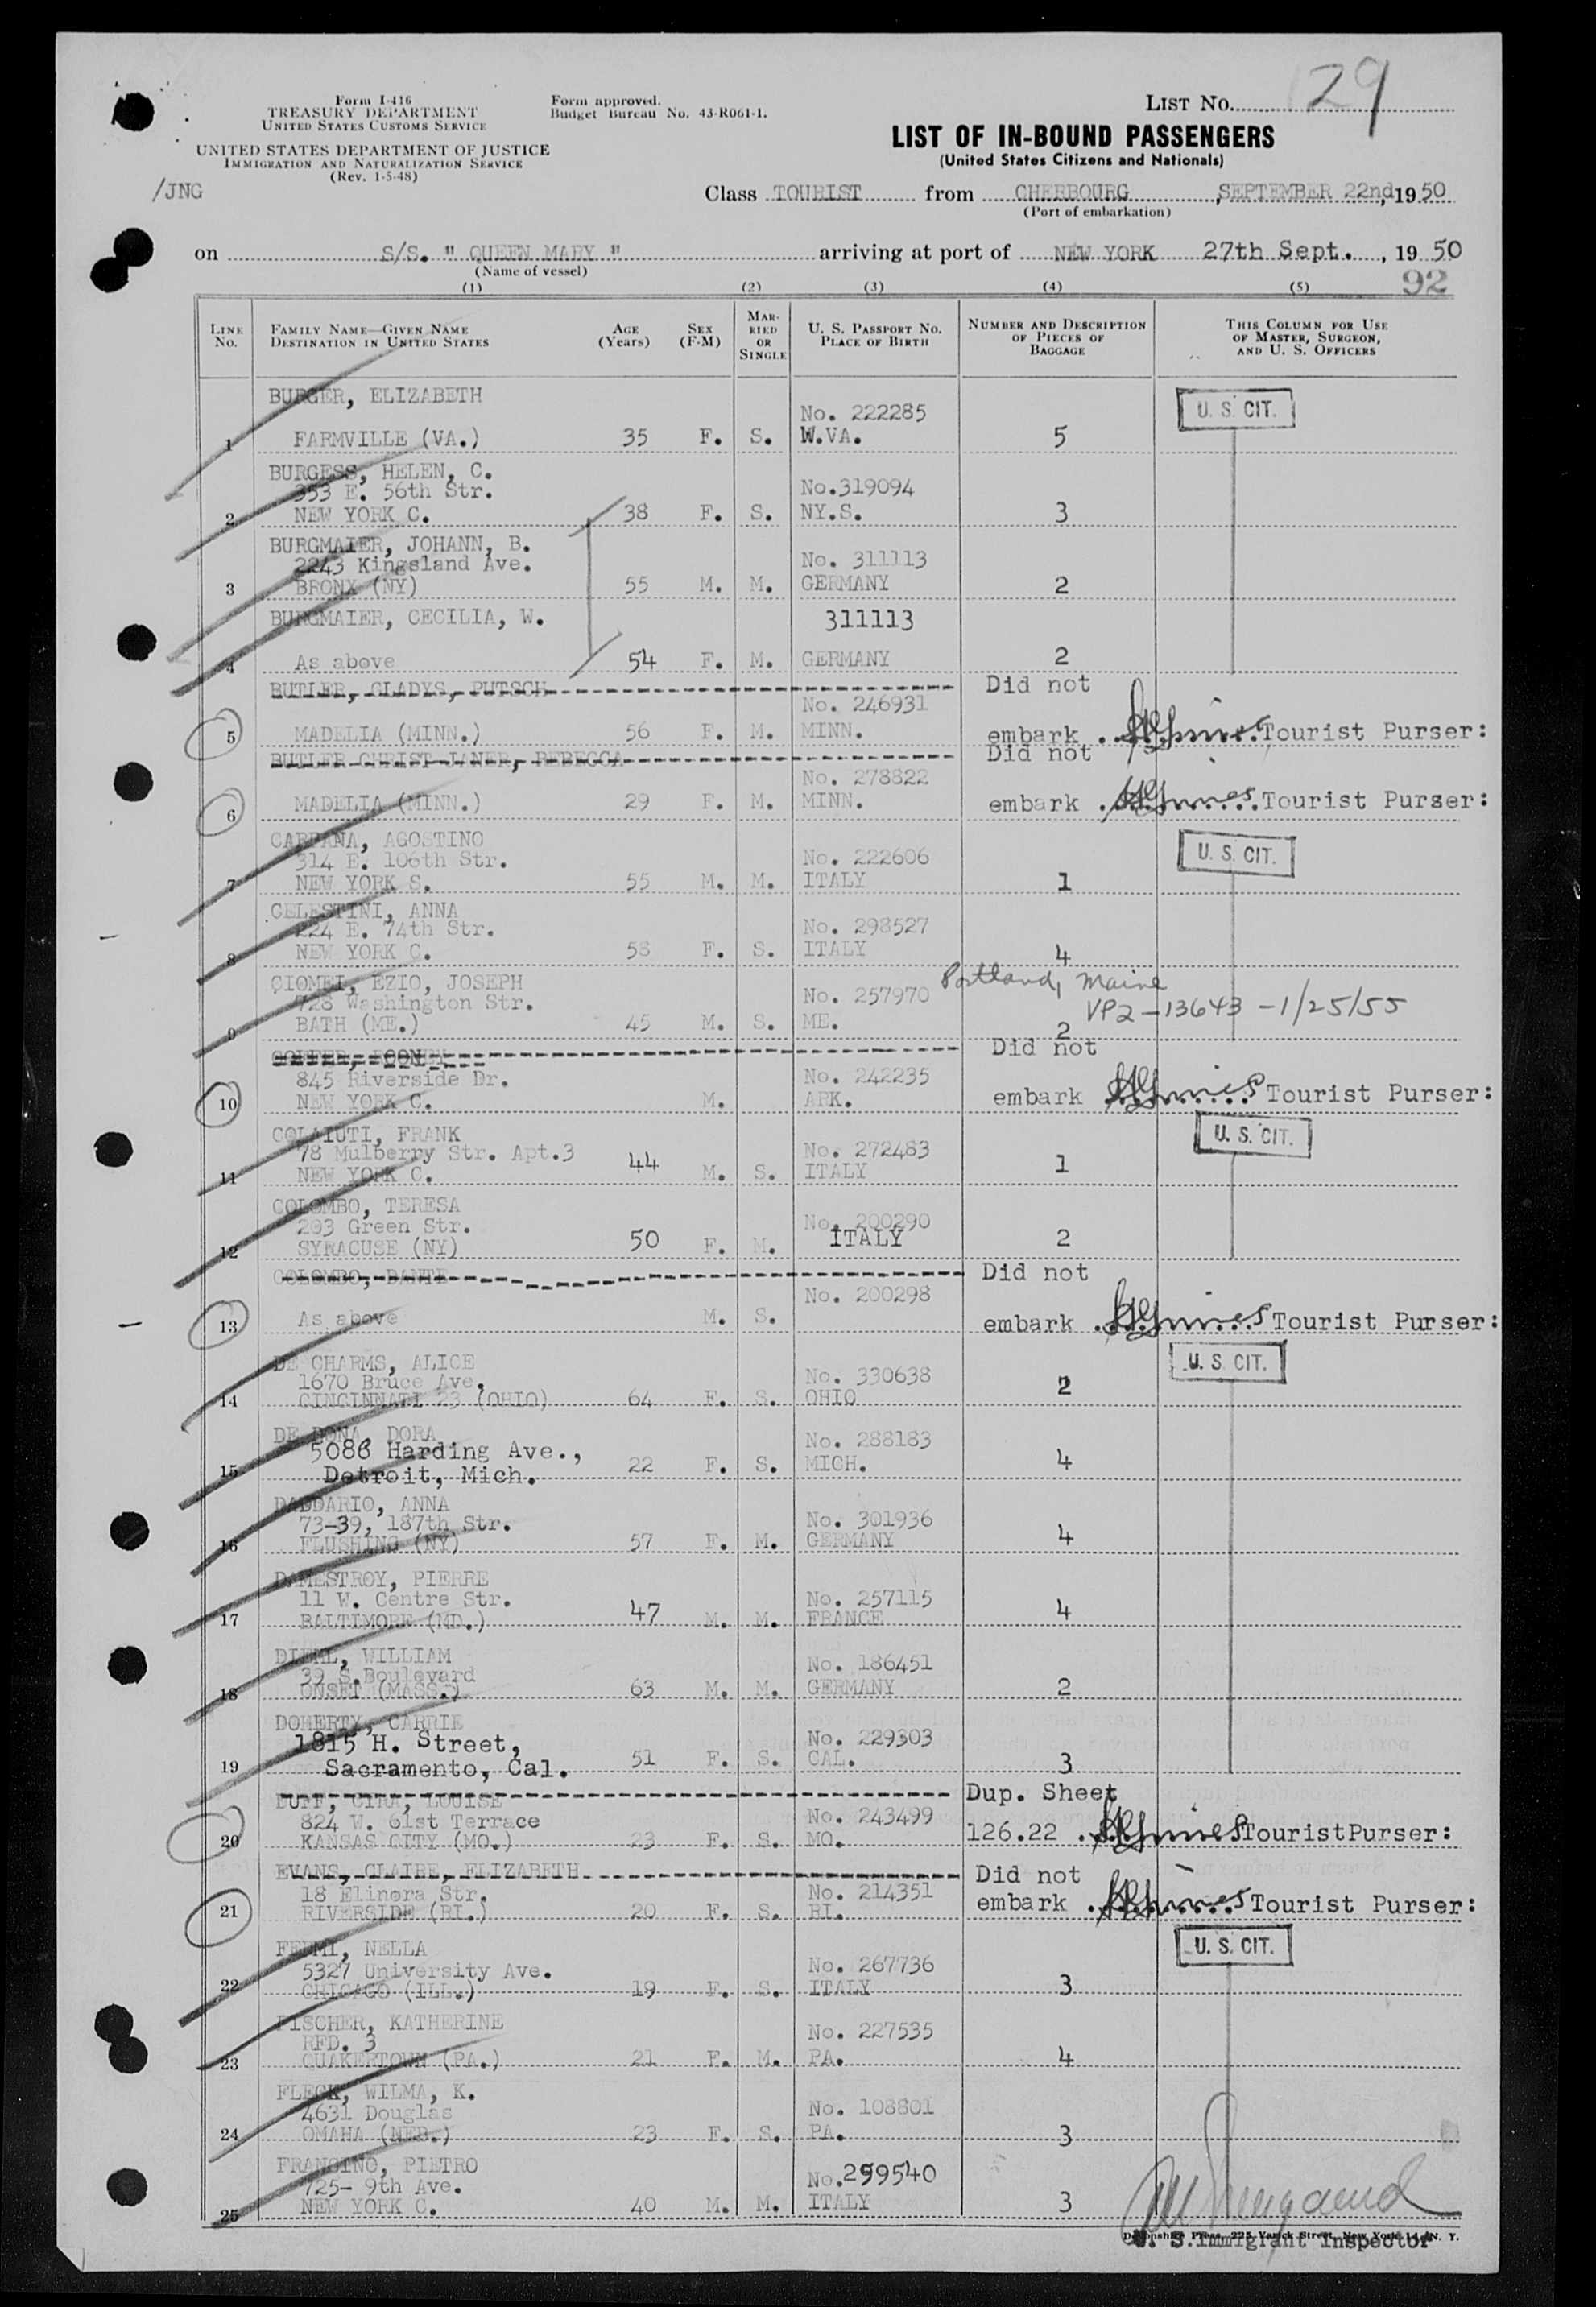 29
Form I-416
TREASURY DEPARTMENT
UNITED STATES CUSTOMS SERVICE
UNITED STATES DEPARTMENT OF JUSTICE
IMMIGRATION AND NATURALIZATION SERVICE
(Rev. 1-5-48)
Form approved.
Budget Bureau No. 43-R061-1.
LIST NO.
LIST OF IN-BOUND PASSENGERS
(United States Citizens and Nationals)
/JNG
Class TOURIST from CHERBOURG, SEPTEMBER 22nd, 1950
(Port of embarkation)
on S/S. " QUEEN MARY " arriving at port of NEW YORK 27th Sept., 19 50
(Name of vessel)
92
(1) (2) (3) (4) (5)
LINE NO. FAMILY NAME—GIVEN NAME DESTINATION IN UNITED STATES AGE (Years) SEX (F-M) MARRIED OR SINGLE U. S. PASSPORT NO. PLACE OF BIRTH NUMBER AND DESCRIPTION OF PIECES OF BAGGAGE THIS COLUMN FOR USE OF MASTER, SURGEON, AND U. S. OFFICERS
BURGER, ELIZABETH No. 222285 U. S. CIT.
1 FARMVILLE (VA.) 35 F. S. W.VA. 5
BURGESS, HELEN, C.
353 E. 56th Str. No.319094
2 NEW YORK C. 38 F. S. NY.S. 3
BURGMAIER, JOHANN, B.
2243 Kingsland Ave. No. 311113
3 BRONX (NY) 55 M. M. GERMANY 2
BURGMAIER, CECILIA, W. 311113
4 As above 54 F. M. GERMANY 2
BUTLER, GLADYS, PUTSCH Did not
No. 246931
5 MADELIA (MINN.) 56 F. M. MINN. embark Tourist Purser:
BUTLER CHRIST JANER, REBECCA Did not
No. 278822
6 MADELIA (MINN.) 29 F. M. MINN. embark Tourist Purser:
CARPANA, AGOSTINO U. S. CIT.
314 E. 106th Str. No. 222606
7 NEW YORK S. 55 M. M. ITALY 1
CELESTINI, ANNA
224 E. 74th Str. No. 298527
8 NEW YORK C. 58 F. S. ITALY 4
CIOMEI, EZIO, JOSEPH Portland, Maine
728 Washington Str. No. 257970 VP2-13643 -1/25/55
9 BATH (ME.) 45 M. S. ME. 2
Did not
845 Riverside Dr. No. 242235
10 NEW YORK C. M. ARK. embark Tourist Purser:
COLAIUTI, FRANK U. S. CIT.
78 Mulberry Str. Apt.3 No. 272483
11 NEW YORK C. 44 M. S. ITALY 1
COLOMBO, TERESA
203 Green Str. No. 200290
12 SYRACUSE (NY) 50 F. M. ITALY 2
COLOMBO, DANTE Did not
No. 200298
13 As above M. S. embark Tourist Purser:
DE CHARMS, ALICE U. S. CIT.
1670 Bruce Ave. No. 330638
14 CINCINNATI 23 (OHIO) 64 F. S. OHIO 2
DE DONA, DORA
5086 Harding Ave., No. 288183
15 Detroit, Mich. 22 F. S. MICH. 4
DADDARIO, ANNA
73-39, 187th Str. No. 301936
16 FLUSHING (NY) 57 F. M. GERMANY 4
DAMESTROY, PIERRE
11 W. Centre Str. No. 257115
17 BALTIMORE (MD.) 47 M. M. FRANCE 4
DIEHL, WILLIAM
39 S.Boulevard No. 186451
18 ONSET (MASS.) 63 M. M. GERMANY 2
DOHERTY, CARRIE
1815 H. Street, No. 229303
19 Sacramento, Cal. 51 F. S. CAL. 3
DUFF, CYRA, LOUISE Dup. Sheet
824 W. 61st Terrace No. 243499
20 KANSAS CITY (MO.) 23 F. S. MO. 126.22 Tourist Purser:
EVANS, CLAIRE, ELIZABETH Did not
18 Elinora Str. No. 214351
21 RIVERSIDE (RI.) 20 F. S. RI. embark Tourist Purser:
FERMI, NELLA U. S. CIT.
5327 University Ave. No. 267736
22 CHICAGO (ILL.) 19 F. S. ITALY 3
FISCHER, KATHERINE
RFD. 3 No. 227535
23 QUAKERTOWN (PA.) 21 F. M. PA. 4
FLECK, WILMA, K.
4631 Douglas No. 108801
24 OMAHA (NEB.) 23 F. S. PA. 3
FRANCINO, PIETRO
725- 9th Ave. No.299540
25 NEW YORK C. 40 M. M. ITALY 3
Devonshire Press, 225 Varick Street, New York 14, N. Y.
U. S. Immigrant Inspector